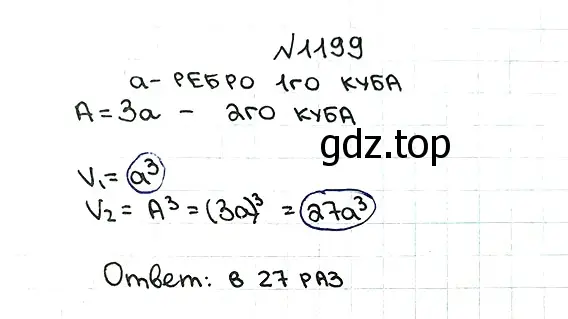 №1199
а- РЕБРО 1го КУБА
А=3а - 2го КУБА
gdz.top
V₁= а³
V₂= А³=(3а)³ = 27а³
Ответ: в 27 РАЗ